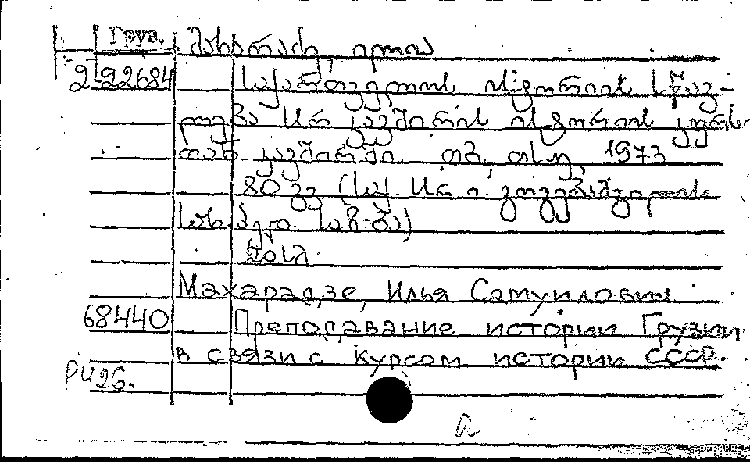 Груз. მახარაძე, ილია
2-92684 საქართველოს ისტორიის სწავ-
ლება სსრ კავშირის ისტორიის კურს-
თან კავშირში. თბ., თსუ, 1973
80 გვ (საქ. სსრ
სახ.
20 სმ.
Махарадзе, Илья Самуилович
68440 Преподавание истории Грузии
в связи с курсом истории СССР.